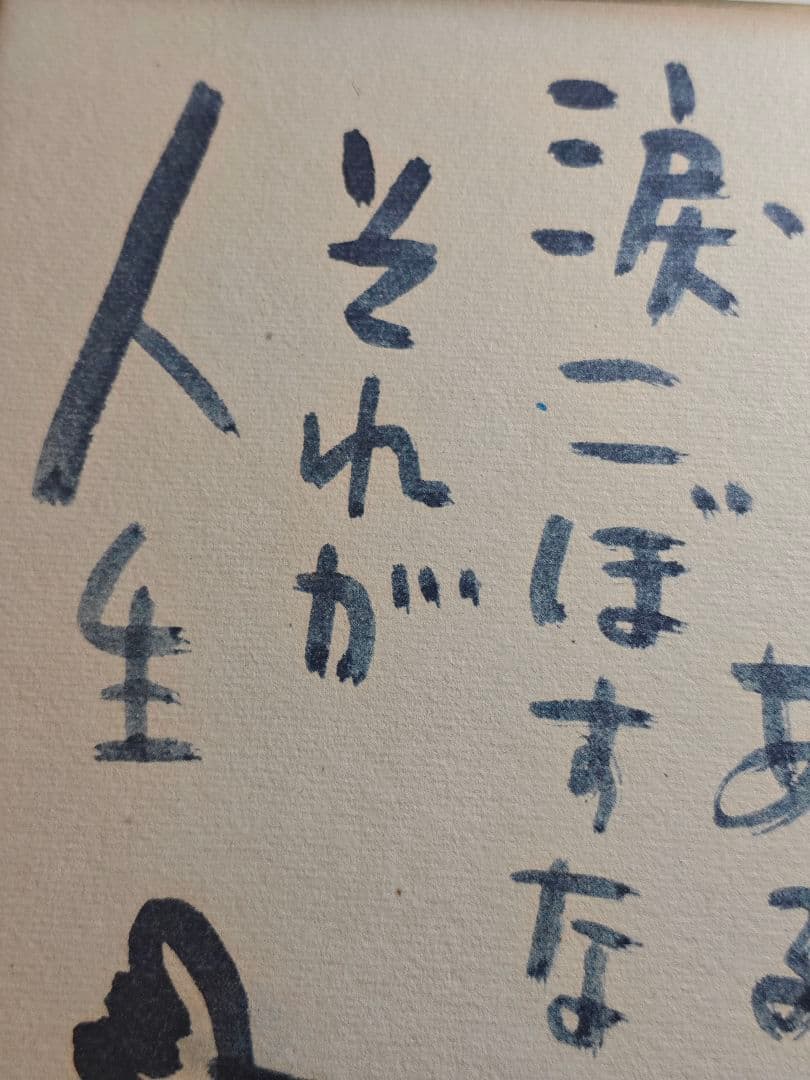 ある
涙こぼすな
それが
人生